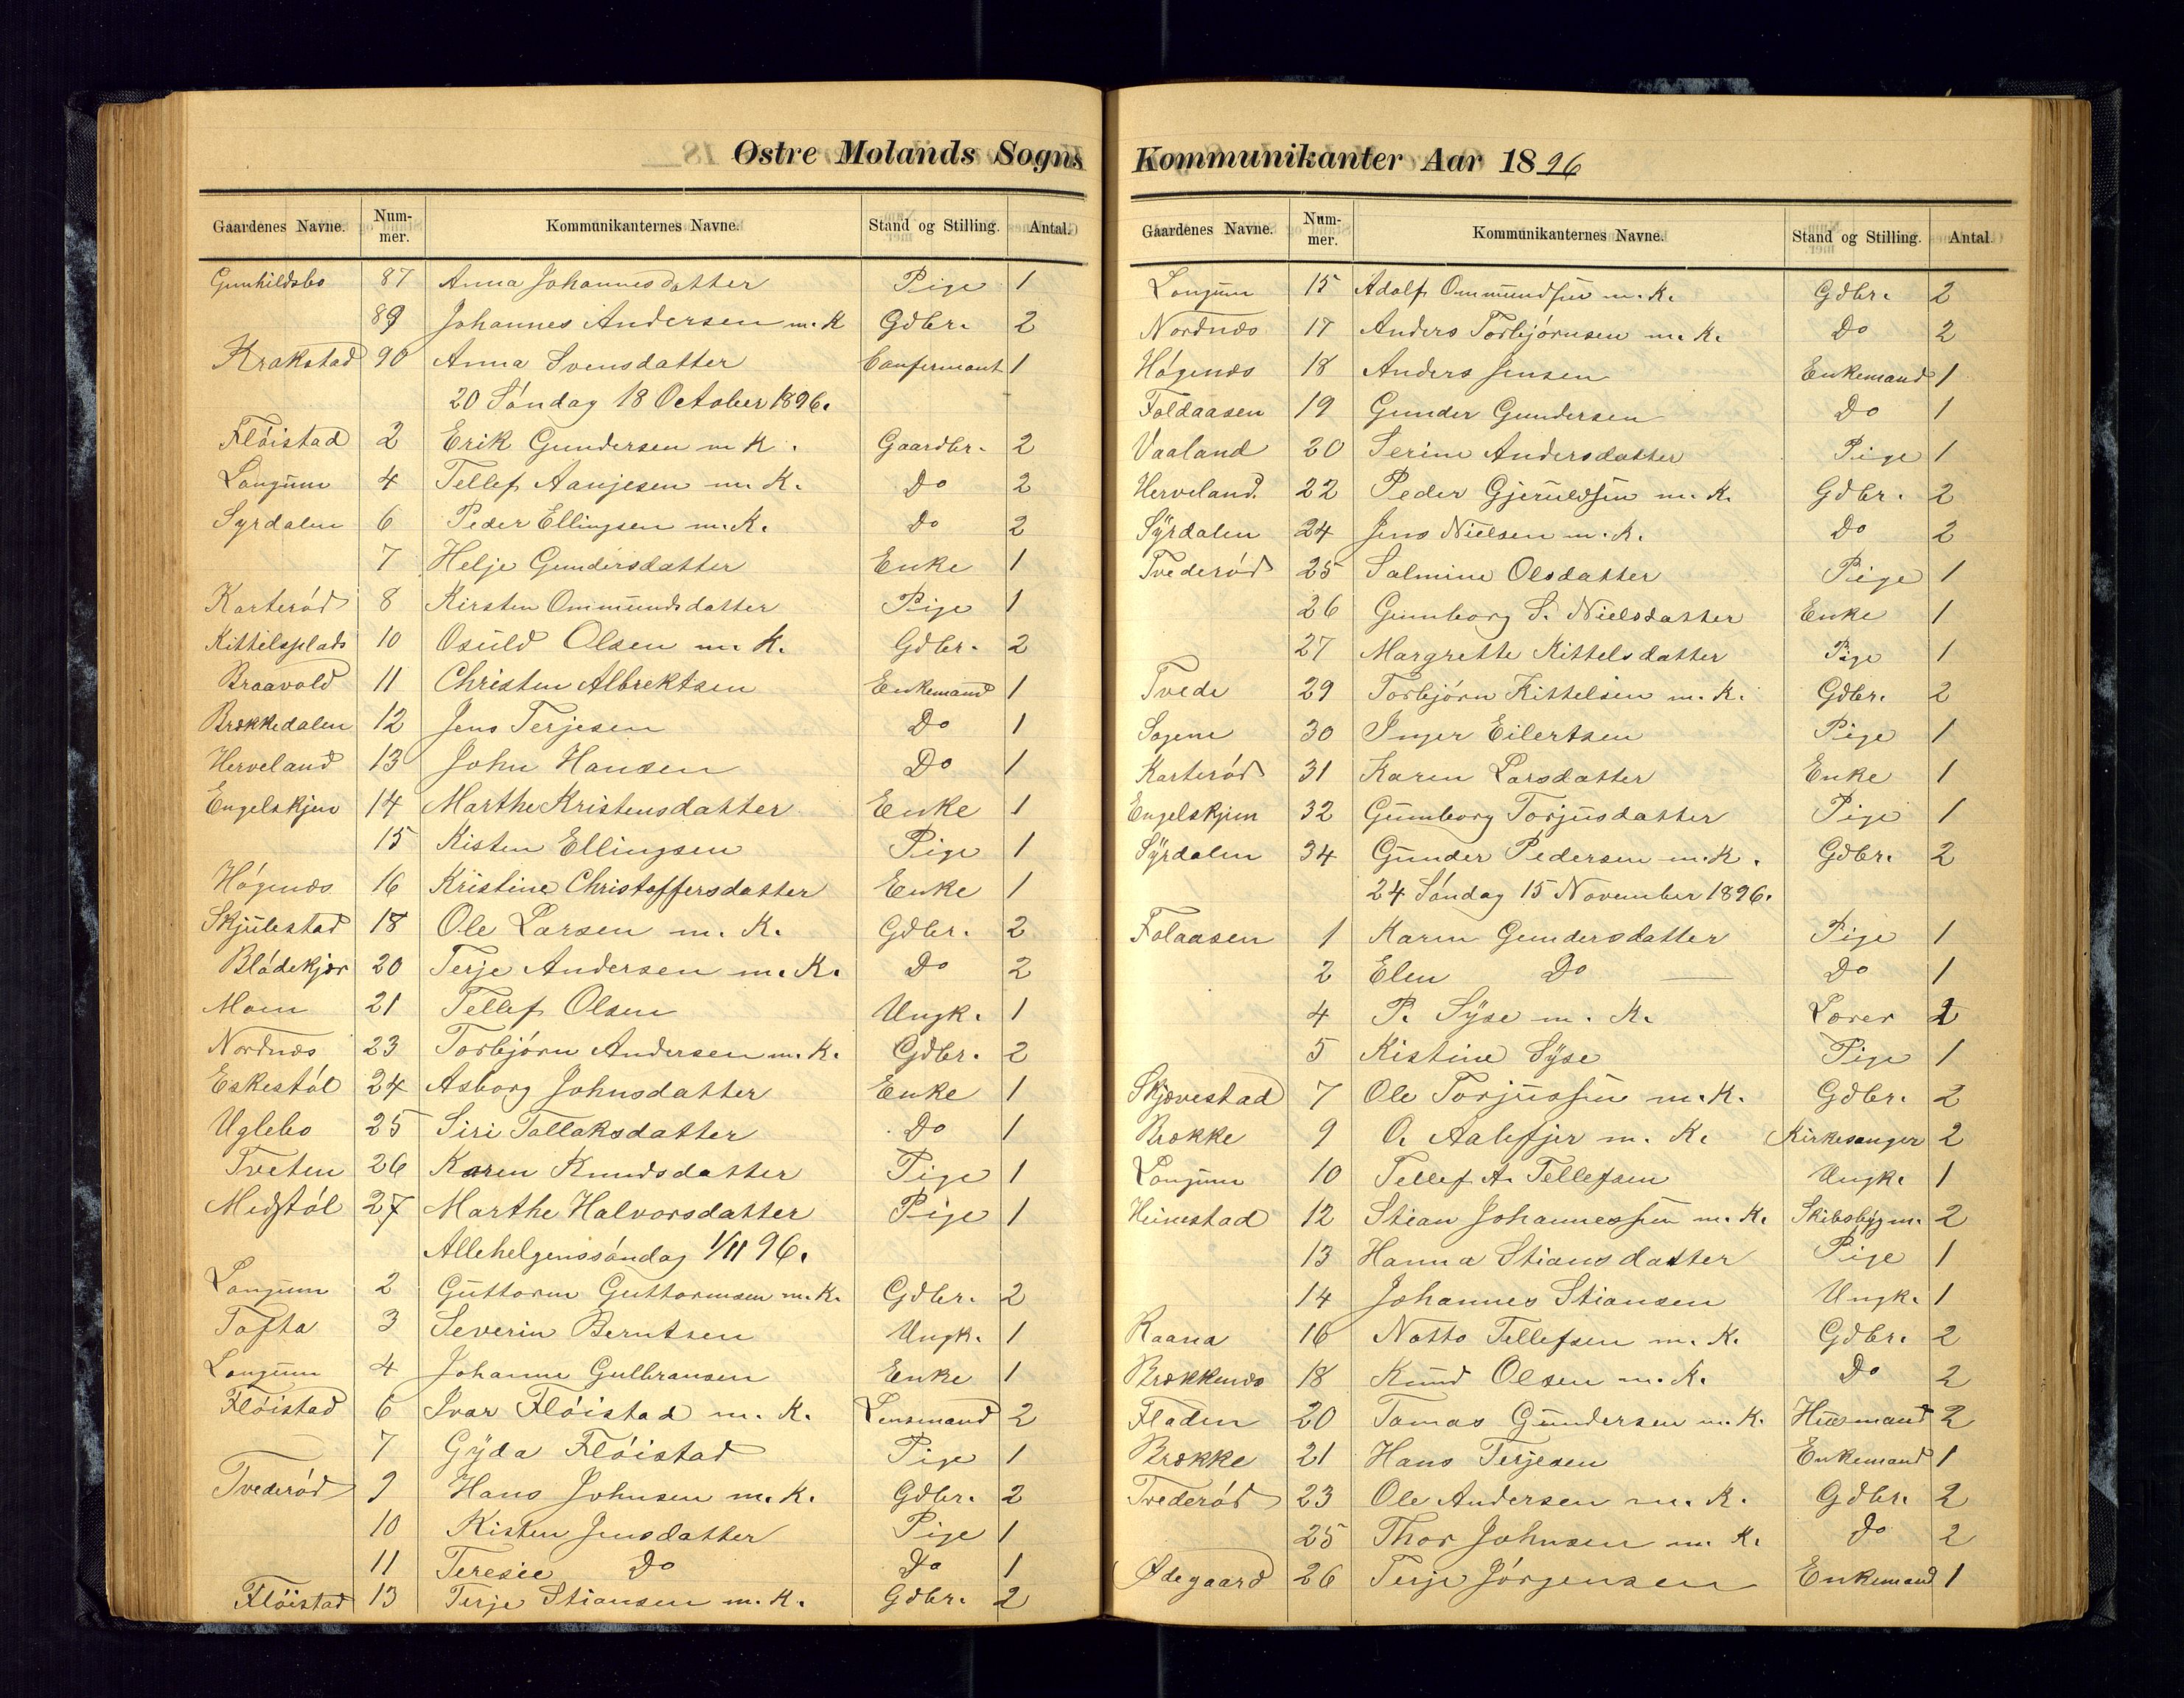 Østre Molands Sogns
Gaardenes Navne. Num-mer. Kommunikanternes Navne. Stand og Stilling. Antal.
Gunhildsbo 87 Anna Johannesdatter Pige 1
89 Johannes Andersen m. K Gdbr. 2
Krakstad 90 Anna Svensdatter Confermant 1
20 Söndag 18 October 1896.
Flöistad 2 Erik Gundersen m K. Gaardbr. 2
Longum 4 Tellef Aanjesen m. K. Do 2
Syrdalen 6 Peder Ellingsen m. K. Do 2
7 Helje Gundersdatter Enke 1
Karteröd 8 Kirsten Ommundsdatter Pige 1
Kittelsplads 10 Osuld Olsen m. K. Gdbr. 2
Braavold 11 Christen Albrektsen Enkemand 1
Brækkedalen 12 Jens Terjesen Do 1
Herveland 13 John Hansen Do 1
Engelskjen 14 Marthe Kristensdatter Enke 1
15 Kisten Ellingsen Pige 1
Högenæs 16 Kristine Christoffersdatter Enke 1
Skjulestad 18 Ole Larsen m. K. Gdbr. 2
Blödekjær 20 Terje Andersen m. K. Do 2
Mom 21 Tellef Olsen Ungk. 1
Nordnæs 23 Torbjörn Andersen m. K. Gdbr. 2
Eskestöl 24 Asborg Johnsdatter Enke 1
Uglebo 25 Siri Tallaksdatter Do 1
Tveten 26 Karen Knudsdatter Pige 1
Midtstöl 27 Marthe Halvorsdatter Pige 1
Allehelgenssöndag 1/11 96.
Longum 2 Guttorm Guttormsen m. K. Gdbr. 2
Tofta 3 Severin Berntsen Ungk. 1
Longum 4 Johanne Gulbransen Enke 1
Flöistad 6 Ivar Flöistad m. K. Lensmand 2
7 Gyda Flöistad Pige 1
Tvederöd 9 Hans Johnsen m. K. Gdbr. 2
10 Kisten Jensdatter Pige 1
11 Teresie Do Do 1
Flöistad 13 Terje Stiansen m. K. Gdbr. 2
Kommunikanter Aar 1896
Gaardenes Navne. Num-mer. Kommunikanternes Navne. Stand og Stilling. Antal
Longum 15 Adolf Ommundsen m. K. Gdbr. 2
Nordnæs 17 Anders Torbjörnsen m. K. Do 2
Högenæs 18 Anders Jensen Enkemand 1
Foldaasen 19 Gunder Gundersen Do 1
Vaaland 20 Serine Andersdatter Pige 1
Herveland 22 Peder Gjeruldsen m. K. Gdbr. 2
Syrdalen 24 Jens Nielsen m. K. Do 2
Tvederöd 25 Salmine Olsdatter Pige 1
26 Gunborg S. Nielsdatter Enke 1
27 Margrette Kittelsdatter Pige 1
Tvede 29 Torbjörn Kittelsen m. K. Gdbr. 2
Sogene 30 Inger Eilertsen Pige 1
Karteröd 31 Karen Larsdatter Enke 1
Engelskjen 32 Gunborg Torjusdatter Pige 1
Syrdalen 34 Gunder Pedersen m. K. Gdbr. 2
24 Söndag 15 November 1896.
Folaasen 1 Karen Gundersdatter Pige 1
2 Elen Do Do 1
4 P. Syse m. K. Lærer 2
5 Kistine Syse Pige 1
Skjævestad 7 Ole Torjussen m. K. Gdbr. 2
Brække 9 O. Aalefjer m. K. Kirkesanger 2
Longum 10 Tellef A. Tellefsen Ungk. 1
Heimestad 12 Stian Johannessen m. K. Skibsbygm. 2
13 Hanna Stiansdatter Pige 1
14 Johannes Stiansen Ungk. 1
Raana 16 Natto Tellefsen m. K. Gdbr. 2
Brækkenæs 18 Knud Olsen m. K. Do 2
Fladen 20 Tomas Gundersen m. K. Husmand 2
Brække 21 Hans Terjesen Enkemand 1
Tvederöd 23 Ole Andersen m. K. Gdbr. 2
25 Thor Johnsen m. K. Do 2
Ødegaard 26 Terje Jörgensen Enkemand 1